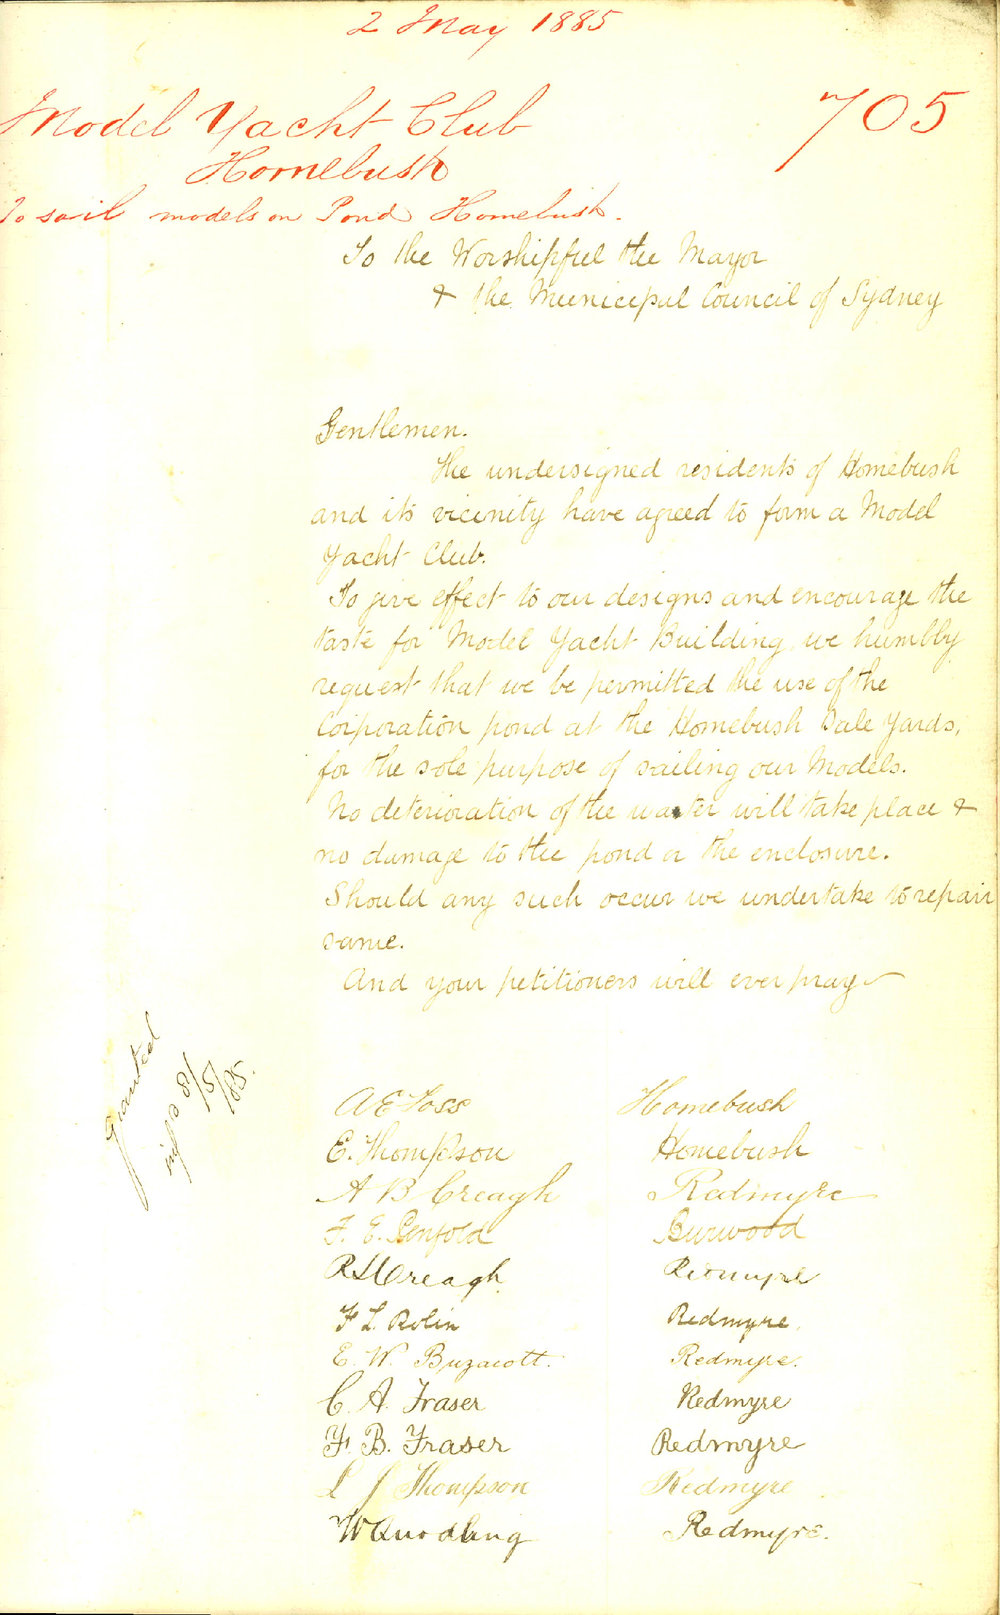 2 May 1885
705
Model Yacht Club
Homebush
To sail models on Pond Homebush.
To the Worshipful the Mayor
& the Municipal Council of Sydney
Gentlemen.
The undersigned residents of Homebush
and its vicinity have agreed to form a Model
Yacht Club.
To give effect to our designs and encourage the
taste for Model Yacht Building we humbly
request that we be permitted the use of the
Corporation pond at the Homebush Sale Yards,
for the sole purpose of sailing our Models.
No deterioration of the water will take place &
no damage to the pond or the enclosure.
Should any such occur we undertake to repair
same.
And your petitioners will ever pray
granted
8/5/85.
A E Foss Homebush
E. Thompson Homebush
A B Creagh Redmyre
F. E. Penfold Burwood
Creagh Redmyre
F L Rolin Redmyre.
E. W. Buzacott. Redmyre.
C. A. Fraser Redmyre
F. B. Fraser Redmyre
L J Thompson Redmyre
W Quodling Redmyre.